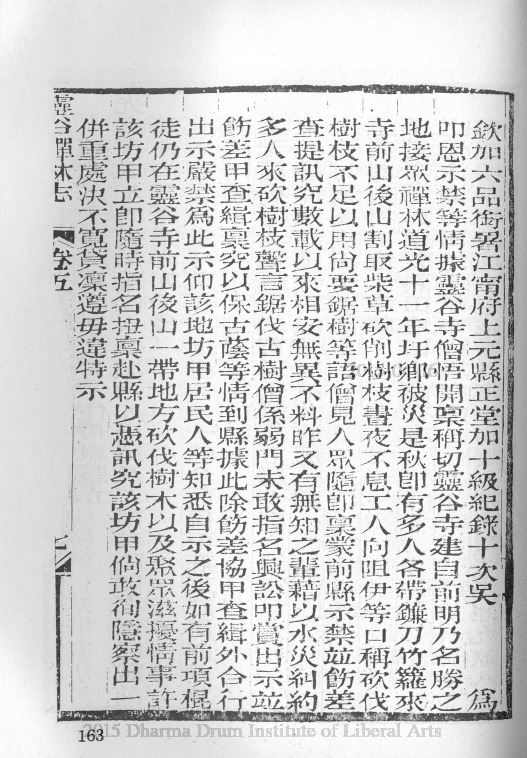 欽加六品銜署江甯府上元縣正堂加十級紀錄十次吳　為
叩恩示禁等情據靈谷寺僧悟開稟稱切靈谷寺建自前明乃名勝之
地接眾禪林道光十一年圩鄉被災是秋即有多人各帶鐮刀竹籮來
寺前山後山割取柴草砍削樹枝晝夜不息工人向阻伊等口稱砍伐
樹枝不足以用尚要鋸樹等語僧見人眾隨即稟蒙前縣示禁竝飭差
查提訊究數載以來相安無異不料昨又有無知之輩藉以水災糾約
多人來砍樹枝聲言鋸伐古樹僧係弱門未敢指名興訟叩賞出示竝
飭差甲查緝稟究以保古蔭等情到縣據此除飭差協甲查緝外合行
出示嚴禁為此示仰該地坊甲居民人等知悉自示之後如有前項棍
徒仍在靈谷寺前山後山一帶地方砍伐樹木以及聚眾滋擾情事許
該坊甲立即隨時指名扭稟赴縣以憑訊究該坊甲倘敢徇隱察出一
併重處決不寬貸凜遵毋違特示
靈谷禪林志
卷五
七
163
2015 Dharma Drum Institute of Liberal Arts